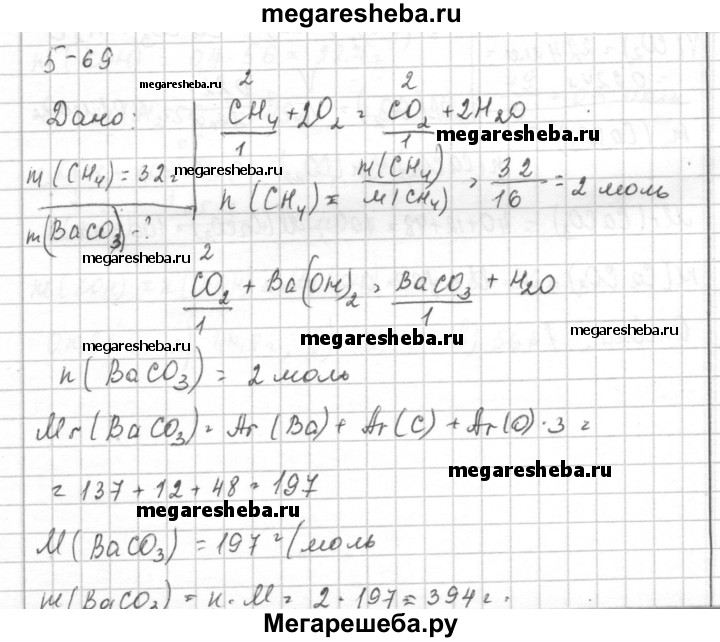 megaresheba.ru
5-69
megaresheba.ru
Дано:
2 2
CH₄ + 2O₂ = CO₂ + 2H₂O
1 1
megaresheba.ru
m(CH₄) = 32 г
n(CH₄) = m(CH₄)/M(CH₄) = 32/16 = 2 моль
m(BaCO₃) - ?
megaresheba.ru
2
CO₂ + Ba(OH)₂ = BaCO₃ + H₂O
1 1
megaresheba.ru
megaresheba.ru
megaresheba.ru
n(BaCO₃) = 2 моль
Mr(BaCO₃) = Ar(Ba) + Ar(C) + Ar(O)·3 =
megaresheba.ru
= 137 + 12 + 48 = 197
megaresheba.ru
M(BaCO₃) = 197 г/моль
m(BaCO₃) = n·M = 2·197 = 394 г.
Мегарешеба.ру